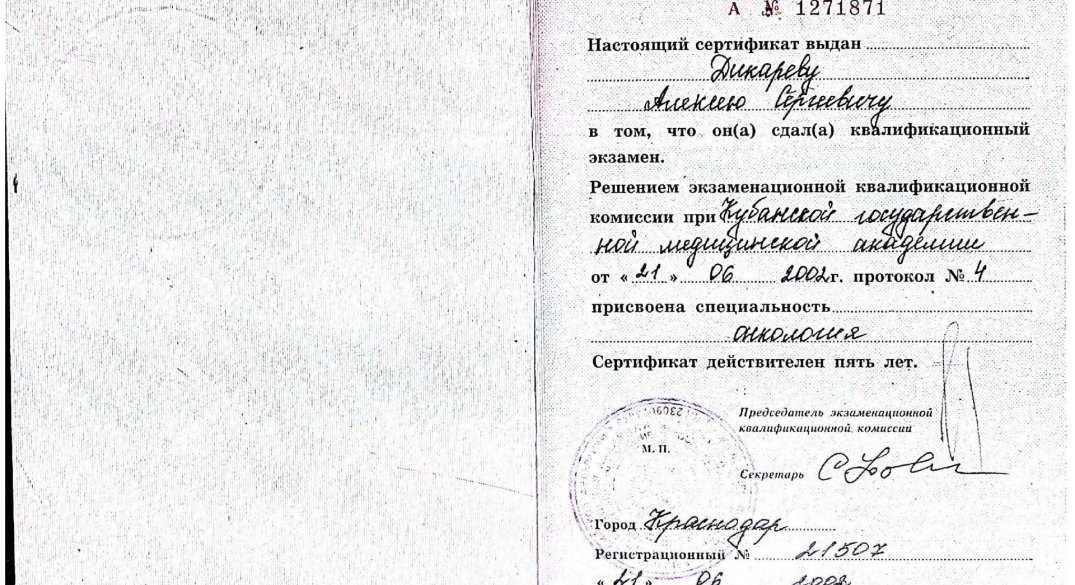 А № 1271871
Настоящий сертификат выдан
Дикареву
Алексею Сергеевичу
в том, что он(а) сдал(а) квалификационный
экзамен.
Решением экзаменационной квалификационной
комиссии при Кубанской государствен-
ной медицинской академии
от « 21 » 06 2002г. протокол № 4
присвоена специальность
онкология
Сертификат действителен пять лет.
Председатель экзаменационной
квалификационной комиссии
М. П.
Секретарь
Город Краснодар
Регистрационный № 21507
« 21 » 06 2002